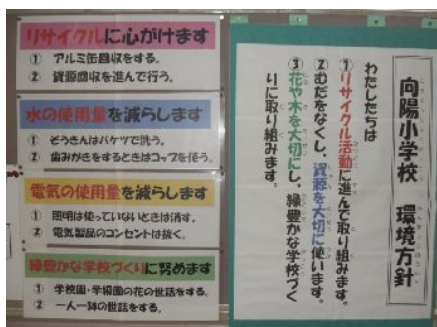 リサイクルに心がけます
① アルミ缶回収をする。
② 資源回収を進んで行う。
水の使用量を減らします
① ぞうきんはバケツで洗う。
② 歯みがきをするときはコップを使う。
電気の使用量を減らします
① 照明は使っていないときは消す。
② 電気製品のコンセントは抜く。
緑豊かな学校づくりに努めます
① 学校園・学級園の花の世話をする。
② 一人一鉢の世話をする。
向陽小学校 環境方針
わたしたちは
①リサイクル活動に進んで取り組みます。
②むだをなくし、資源を大切に使います。
③花や木を大切にし、緑豊かな学校づく
りに取り組みます。